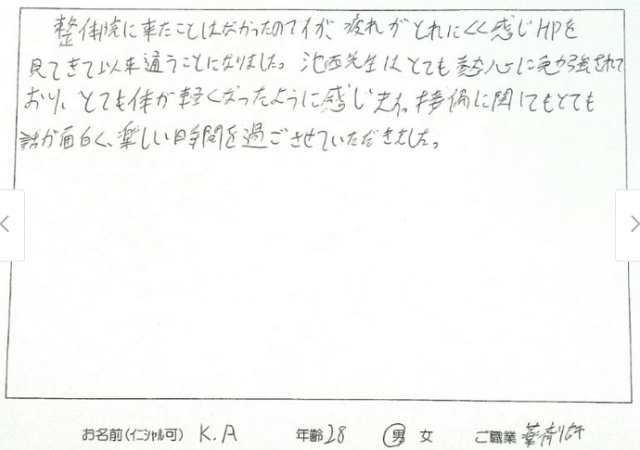 整体院に来たことはなかったのですが、疲れがとれにくく感じHPを
見てきて以来通うことになりました。池西先生はとても熱心に勉強されて
おり、とても体が軽くなったように感じます。接偶に関してもとても
話が面白く、楽しい時間を過ごさせていただきました。
お名前(イニシャル可) K.A 年齢 28 男 女 ご職業 薬剤師